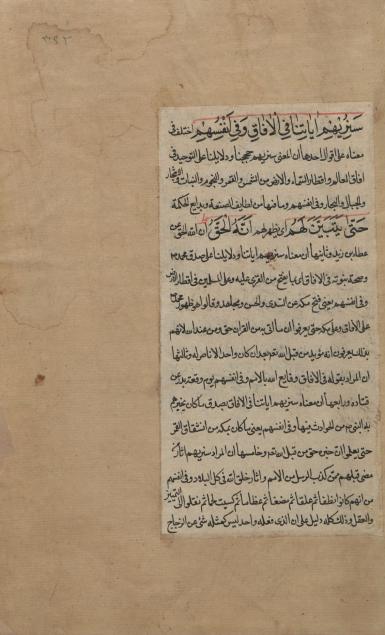 سنريهم اياتنا في الافاق وفي انفسهم اختلف في
معناه على اقوال احدها ان المعنى سنريهم حججنا ودلايلنا على التوحيد في
افاق العالم واقطار السماء والارض من الشمس والقمر والنجوم والنبات والاشجار
والجبال والبحار وفي انفسهم وما فيها من لطايف الصنعة وبدايع الحكمة
حتى يتبين لهم اي يظهر لهم انه الحق ان الله الحق عن
عطا بن زيد وثانيها ان معناه سنريهم اياتنا ودلايلنا على صدق محمد
وصحة نبوته في الافاق اي ما يفتح من القرى عليه وعلى المسلمين في اقطار الارض
وفي انفسهم يعني فتح مكة عن السدى والحسن ومجاهد وقالوا هو ظهور محمد
على الافاق وعلى مكة حتى يعرفوا ان ما اتى به من القران حق ومن عند الله لانهم
بذلك يعرفون انه مؤيد من قبل الله بعد ان كان واحدا لا ناصر له وثالثها
ان المراد بقوله في الافاق وقايع الله بالامم وفي انفسهم يوم بدر عن
قتاده ورابعها ان معناه سنريهم اياتنا في الافاق بصدق ما كان يخبرهم
به النبي من الحوادث فيها وفي انفسهم يعني ما كان بمكة من انشقاق القمر
حتى يعلموا ان خبره حق من قبل الله وخامسها ان المراد سنريهم اثار من
مضى قبلهم ممن كذب الرسل من الامم واثار خلق الله في كل البلاد وفي انفسهم
من انهم كانوا نطفا ثم علقا ثم مضغا ثم عظاما ثم كسيت لحما ثم نقلوا الى التمييز
والعقل وذلك كله دليل على ان الذي فعله واحد ليس كمثله شئ عن الزجاج